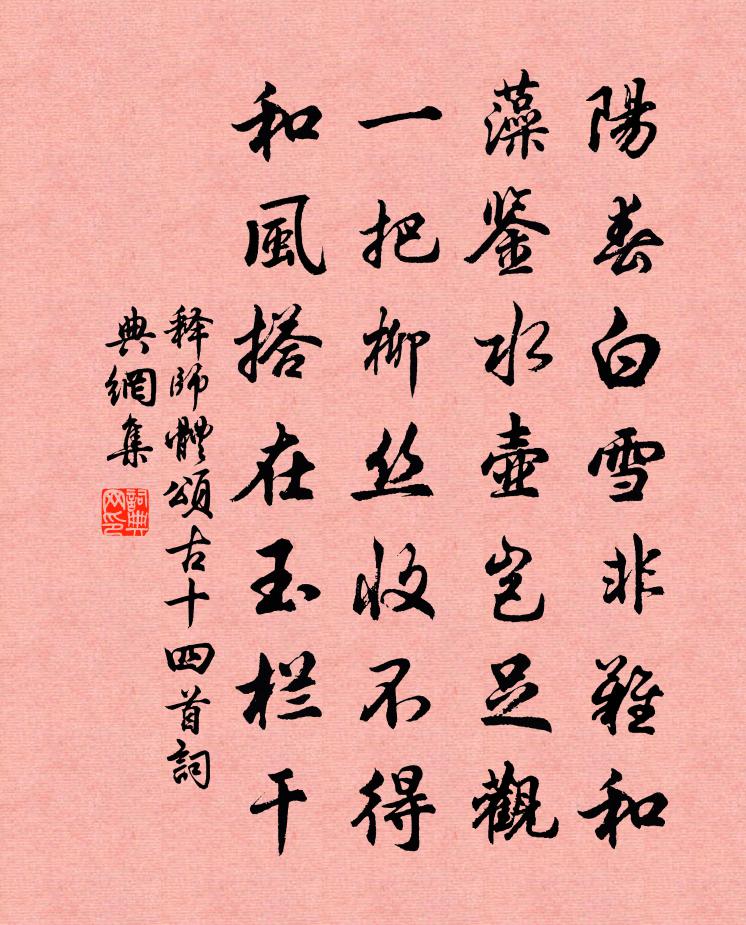 陽春白雪非難和
藻鉴水壺豈足觀
一把柳丝收不得
和風搭在玉栏干
释師體頌古十四首詞
典網集
詞典
网印